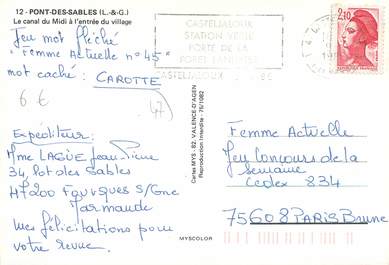 12 - PONT-DES-SABLES (L.-&-G.)
Le canal du Midi à l'entrée du village
Jeu mot fléché
"Femme Actuelle n° 45"
mot caché : CAROTTE
6 €
47
Expéditeur :
Mme LAGÜE Jean-Pierre
34, lot des Sables
47200 FOURQUES S/Gne
Marmande
mes félicitations pour
votre revue.
CASTELJALOUX
STATION VERTE
PORTE DE LA
FORET LANDAISE
CASTELJALOUX
2,10
REPUBLIQUE FRANÇAISE
Cartes MYS - 82. VALENCE-D'AGEN
Reproduction Interdite - 76/1082
MYSCOLOR
Femme Actuelle
Jeu Concours de la
semaine
Cedex 834
75608 PARIS Brune